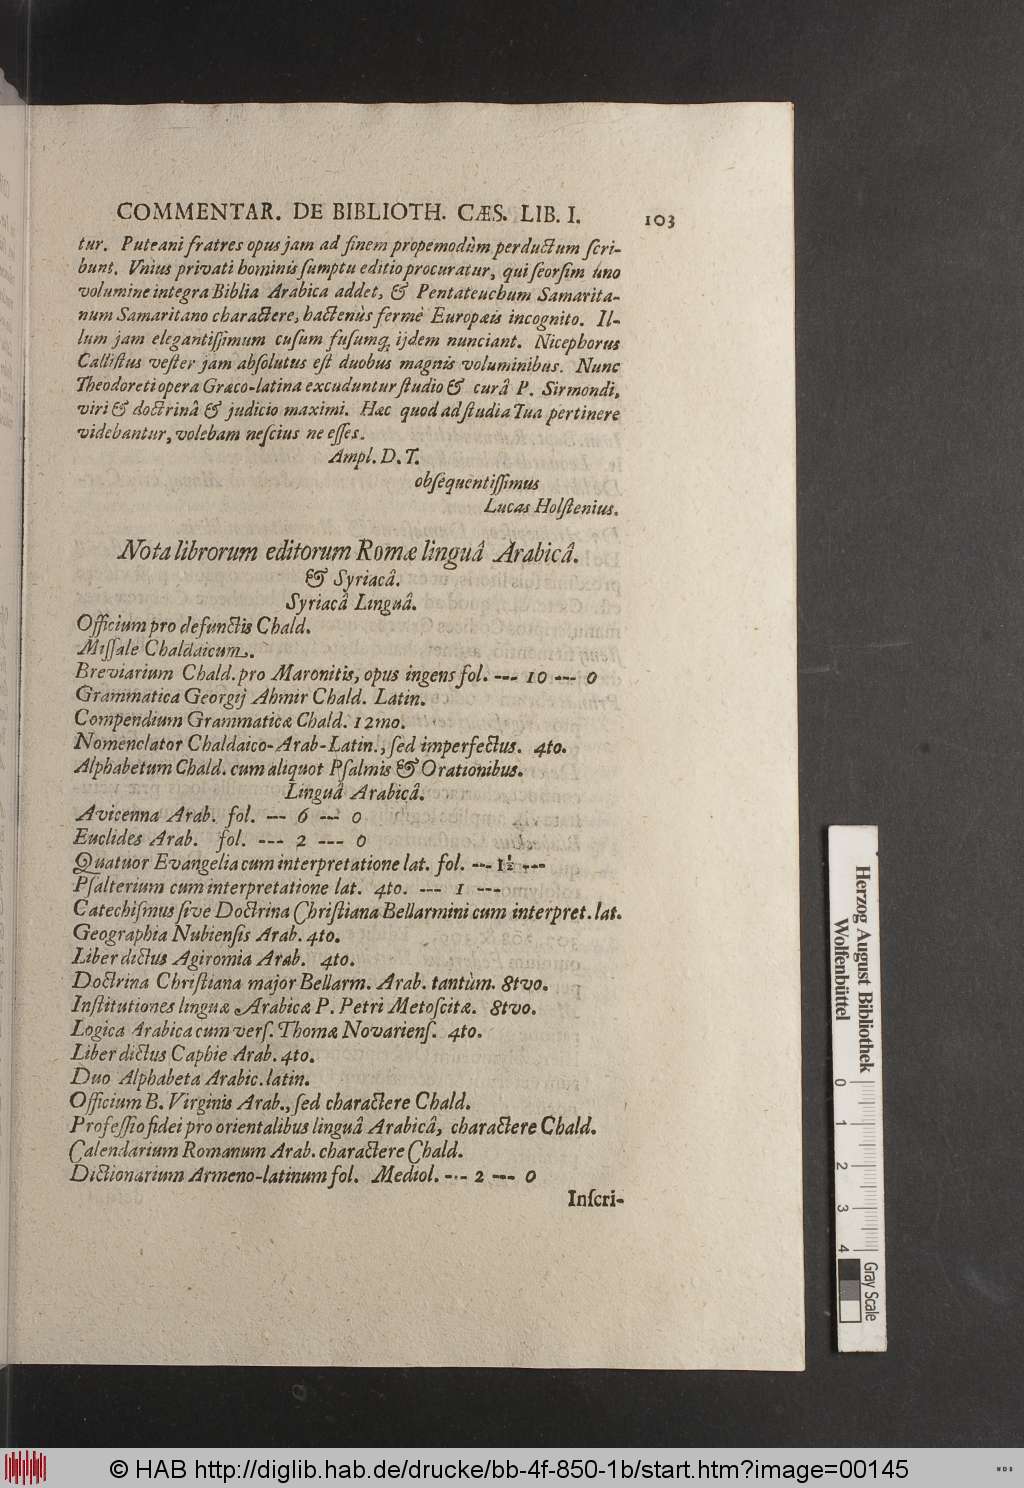 COMMENTAR. DE BIBLIOTH. CÆS. LIB. I. 103
tur. Puteani fratres opus jam ad finem propemodùm perductum ſcri-
bunt. Vnius privati hominis ſumptu editio procuratur, qui ſeorſim uno
volumine integra Biblia Arabica addet, & Pentateuchum Samarita-
num Samaritano charactere, hactenùs fermè Europæis incognito. Il-
lum jam elegantiſſimum cuſum fuſumq; ijdem nunciant. Nicephorus
Calliſtus veſter jam abſolutus eſt duobus magnis voluminibus. Nunc
Theodoreti opera Græco-latina excuduntur ſtudio & curâ P. Sirmondi,
viri & doctrinâ & judicio maximi. Hæc quod ad ſtudia Tua pertinere
videbantur, volebam neſcius ne eſſes.
Ampl. D. T.
obſequentiſſimus
Lucas Holſtenius.
Nota librorum editorum Romæ linguâ Arabicâ.
& Syriacâ.
Syriacâ Linguâ.
Officium pro defunctis Chald.
Miſſale Chaldaicum.
Breviarium Chald. pro Maronitis, opus ingens fol. --- 10 --- 0
Grammatica Georgij Ahmir Chald. Latin.
Compendium Grammaticæ Chald. 12mo.
Nomenclator Chaldaico-Arab-Latin., ſed imperfectus. 4to.
Alphabetum Chald. cum aliquot Pſalmis & Orationibus.
Linguâ Arabicâ.
Avicenna Arab. fol. --- 6 --- 0
Euclides Arab. fol. --- 2 --- 0
Quatuor Evangelia cum interpretatione lat. fol. --- 1½ ---
Pſalterium cum interpretatione lat. 4to. --- 1 ---
Catechiſmus ſive Doctrina Chriſtiana Bellarmini cum interpret. lat.
Geographia Nubienſis Arab. 4to.
Liber dictus Agiromia Arab. 4to.
Doctrina Chriſtiana major Bellarm. Arab. tantùm. 8tvo.
Inſtitutiones linguæ Arabicæ P. Petri Metoſcitæ. 8tvo.
Logica Arabica cum verſ. Thomæ Novarienſ. 4to.
Liber dictus Caphie Arab. 4to.
Duo Alphabeta Arabic. latin.
Officium B. Virginis Arab., ſed charactere Chald.
Profeſſio fidei pro orientalibus linguâ Arabicâ, charactere Chald.
Calendarium Romanum Arab. charactere Chald.
Dictionarium Armeno-latinum fol. Mediol. --- 2 --- 0
Inſcri-
Herzog August Bibliothek
Wolfenbüttel
0 1 2 3 4
Gray Scale
© HAB http://diglib.hab.de/drucke/bb-4f-850-1b/start.htm?image=00145